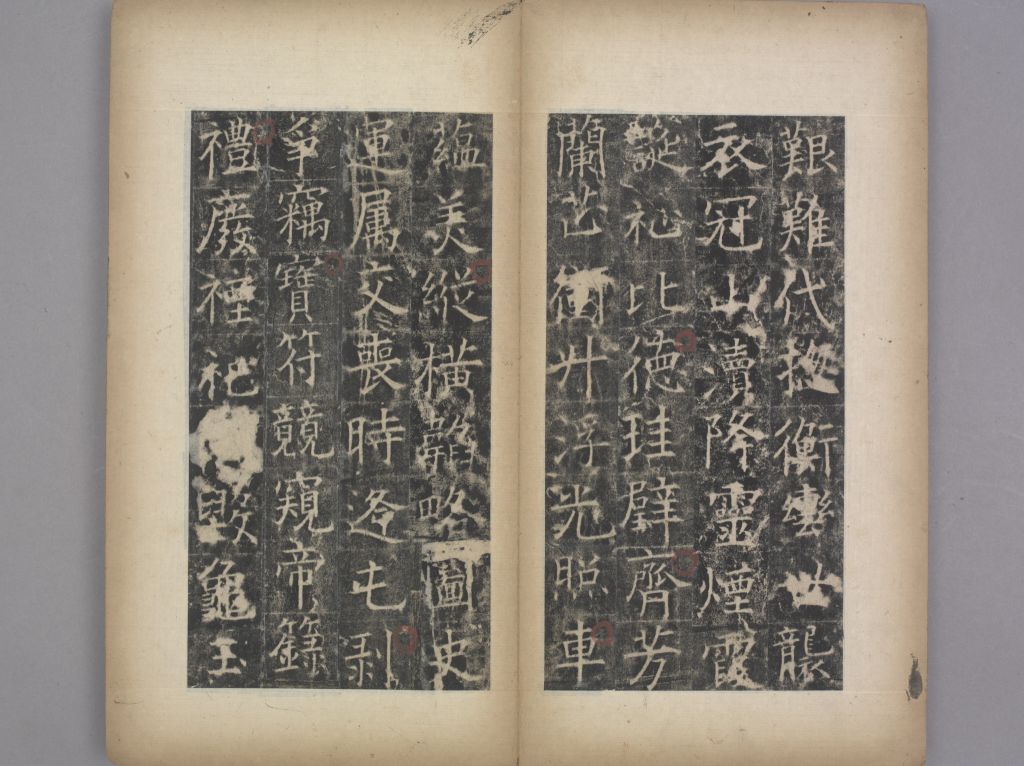 艱難代衡世襲
衣冠山瀆降靈煙霞
誕祉比德珪璧齊芳
蘭芷衝斗浮光照車
蘊美縱橫韜略圖史
運属交喪時逢屯剝
爭竊寶符競窺帝籙
禮廢禋祀毀龜玉